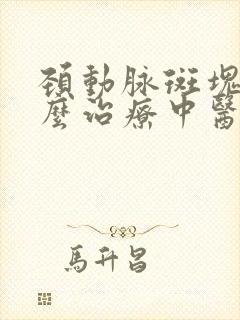 頸動脉斑塊
麼治療中醫
馬升昌